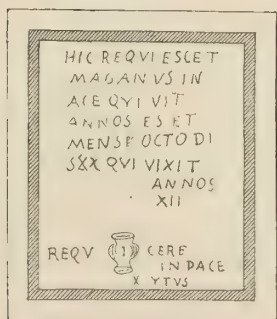 HIC REQVI ESCET
MAGANVS IN
ACE QVI VIT
ANNOS ES ET
MENSE OCTO DI
SXX QVI VIXIT
ANNOS
XII
REQV CERE
IN PACE
X YTVS